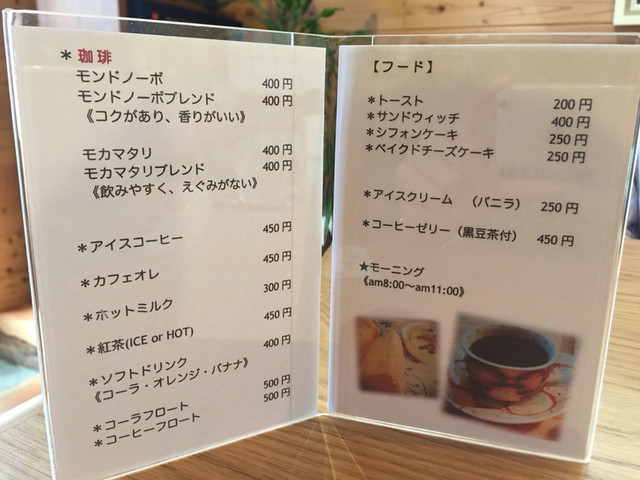 ＊珈琲
モンドノーボ 400円
モンドノーボブレンド 400円
《コクがあり、香りがいい》
モカマタリ 400円
モカマタリブレンド 400円
《飲みやすく、えぐみがない》
＊アイスコーヒー 450円
＊カフェオレ 450円
＊ホットミルク 300円
＊紅茶(ICE or HOT) 450円
＊ソフトドリンク 400円
《コーラ・オレンジ・バナナ》
＊コーラフロート 500円
＊コーヒーフロート 500円
【フード】
＊トースト 200円
＊サンドウィッチ 400円
＊シフォンケーキ 250円
＊ベイクドチーズケーキ 250円
＊アイスクリーム （バニラ） 250円
＊コーヒーゼリー（黒豆茶付） 450円
★モーニング
《am8:00～am11:00》